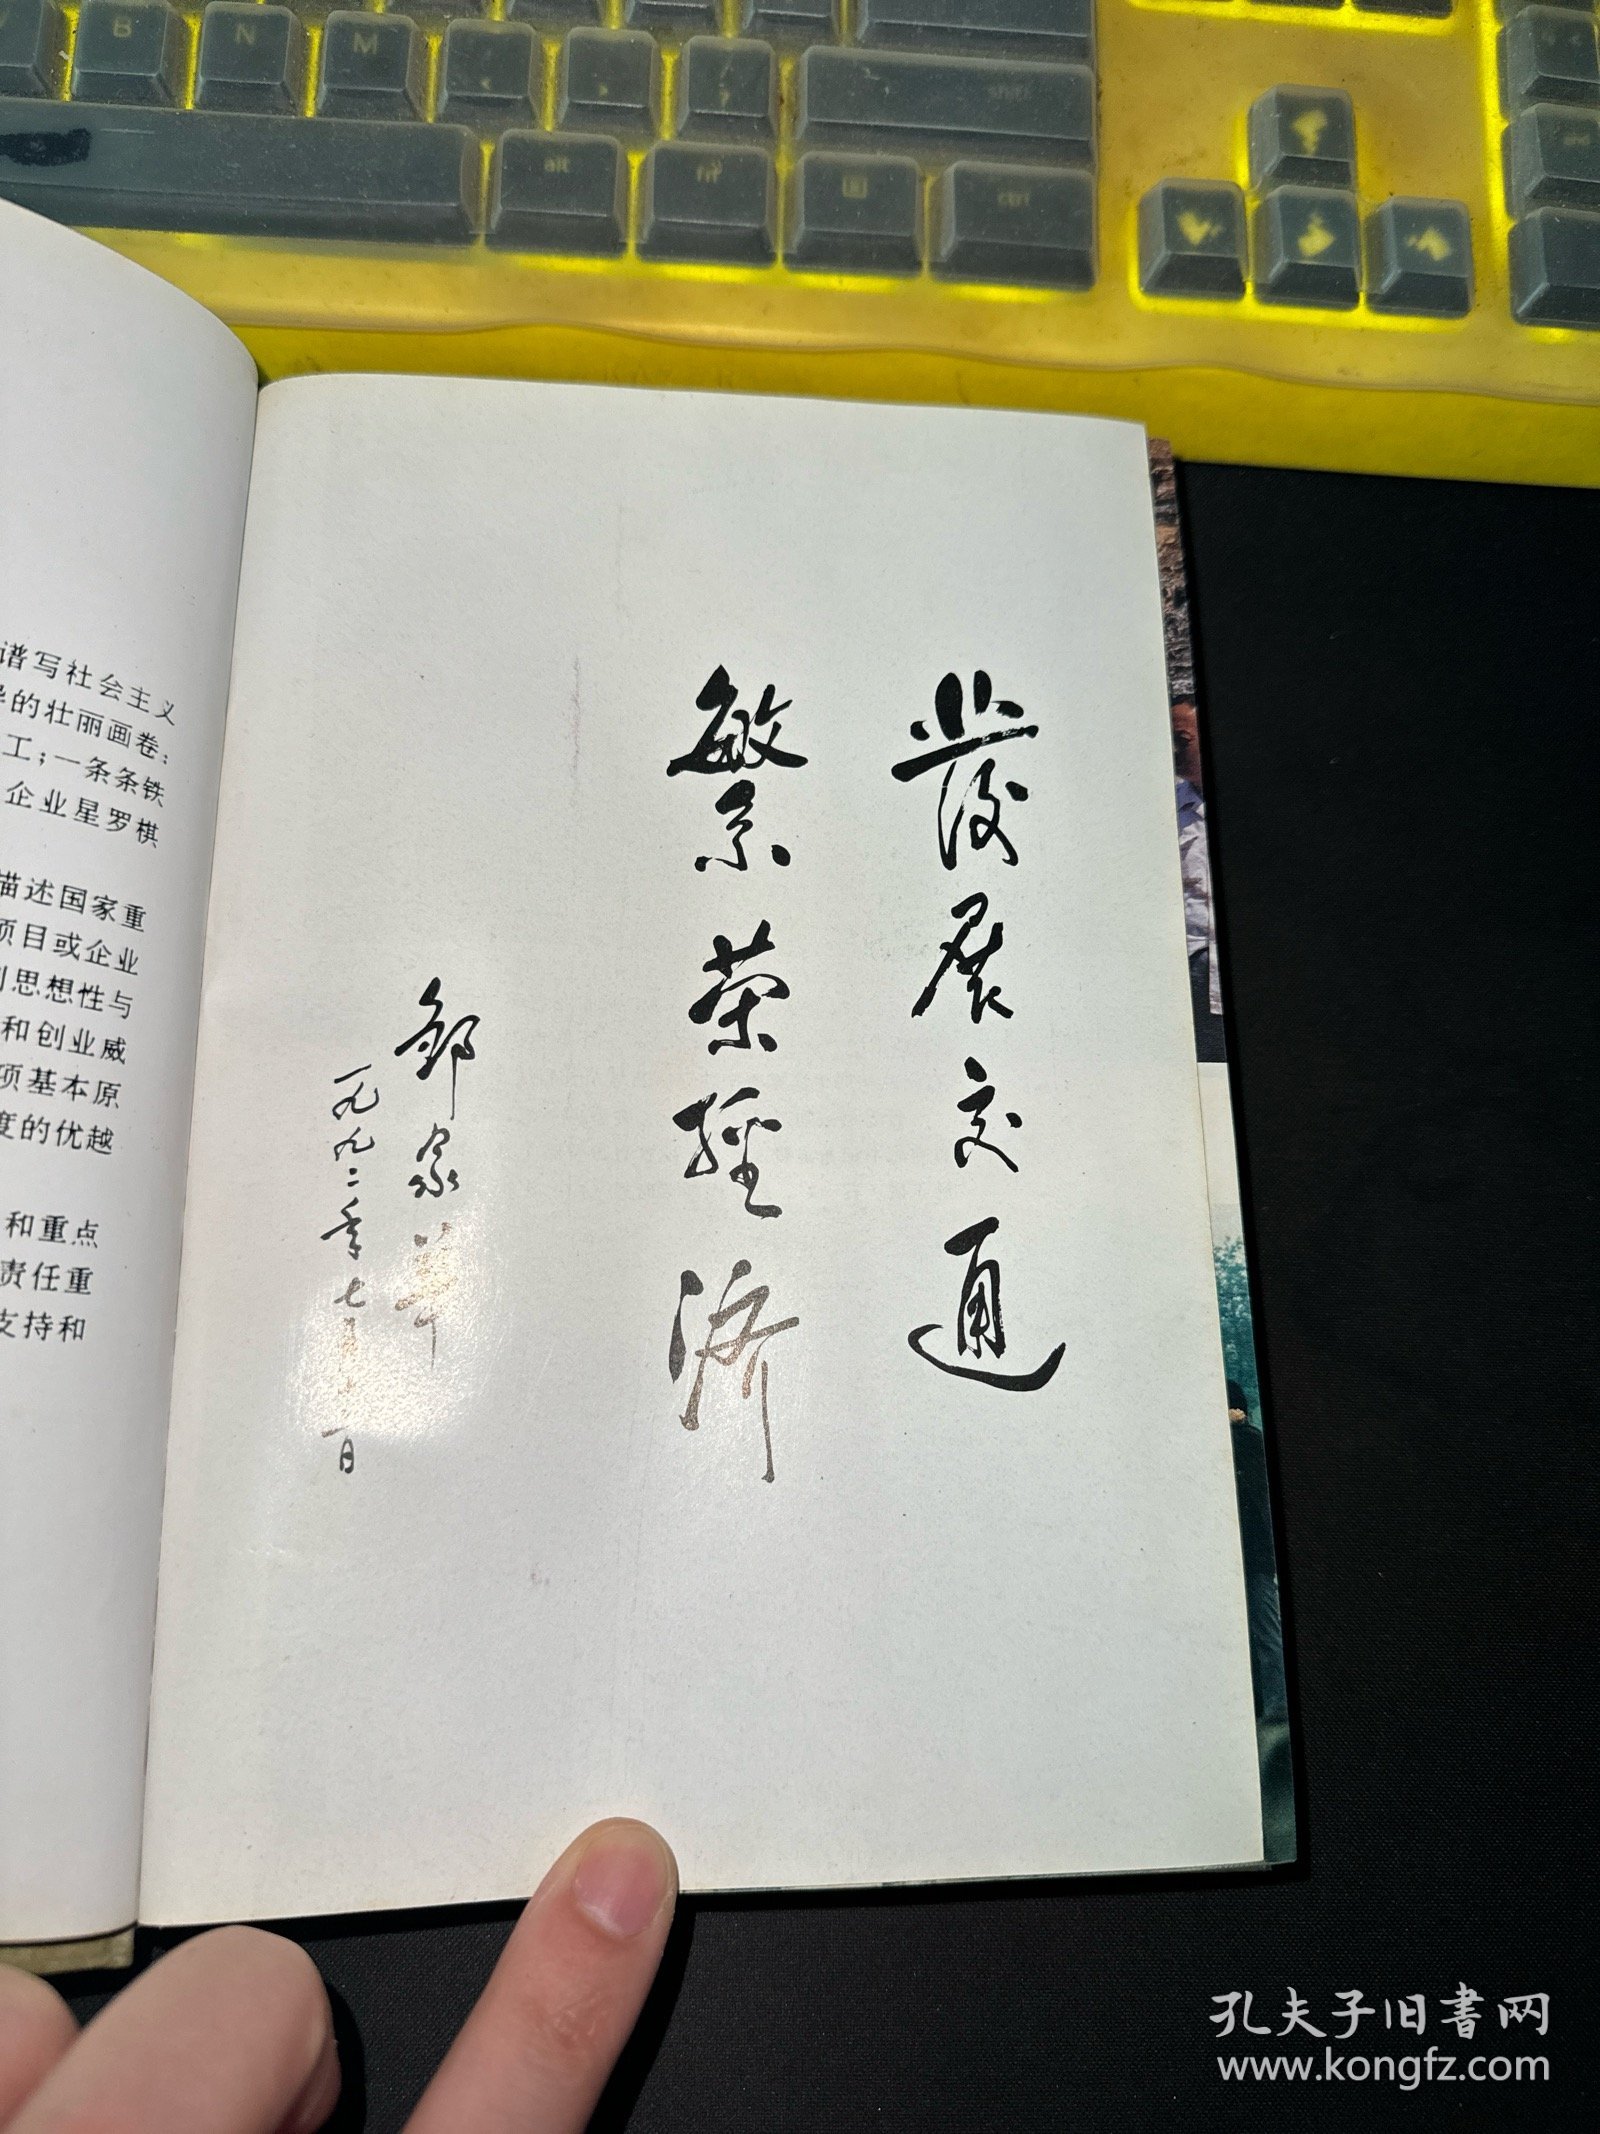 B N M
shift
alt fn ctrl
谱写社会主义
的壮丽画卷：
工；一条条铁
企业星罗棋
描述国家重
项目或企业
思想性与
和创业威
项基本原
度的优越
和重点
责任重
支持和
發展交通
繁荣经济
邹家华
一九九二年七月
日
孔夫子旧書网
www.kongfz.com